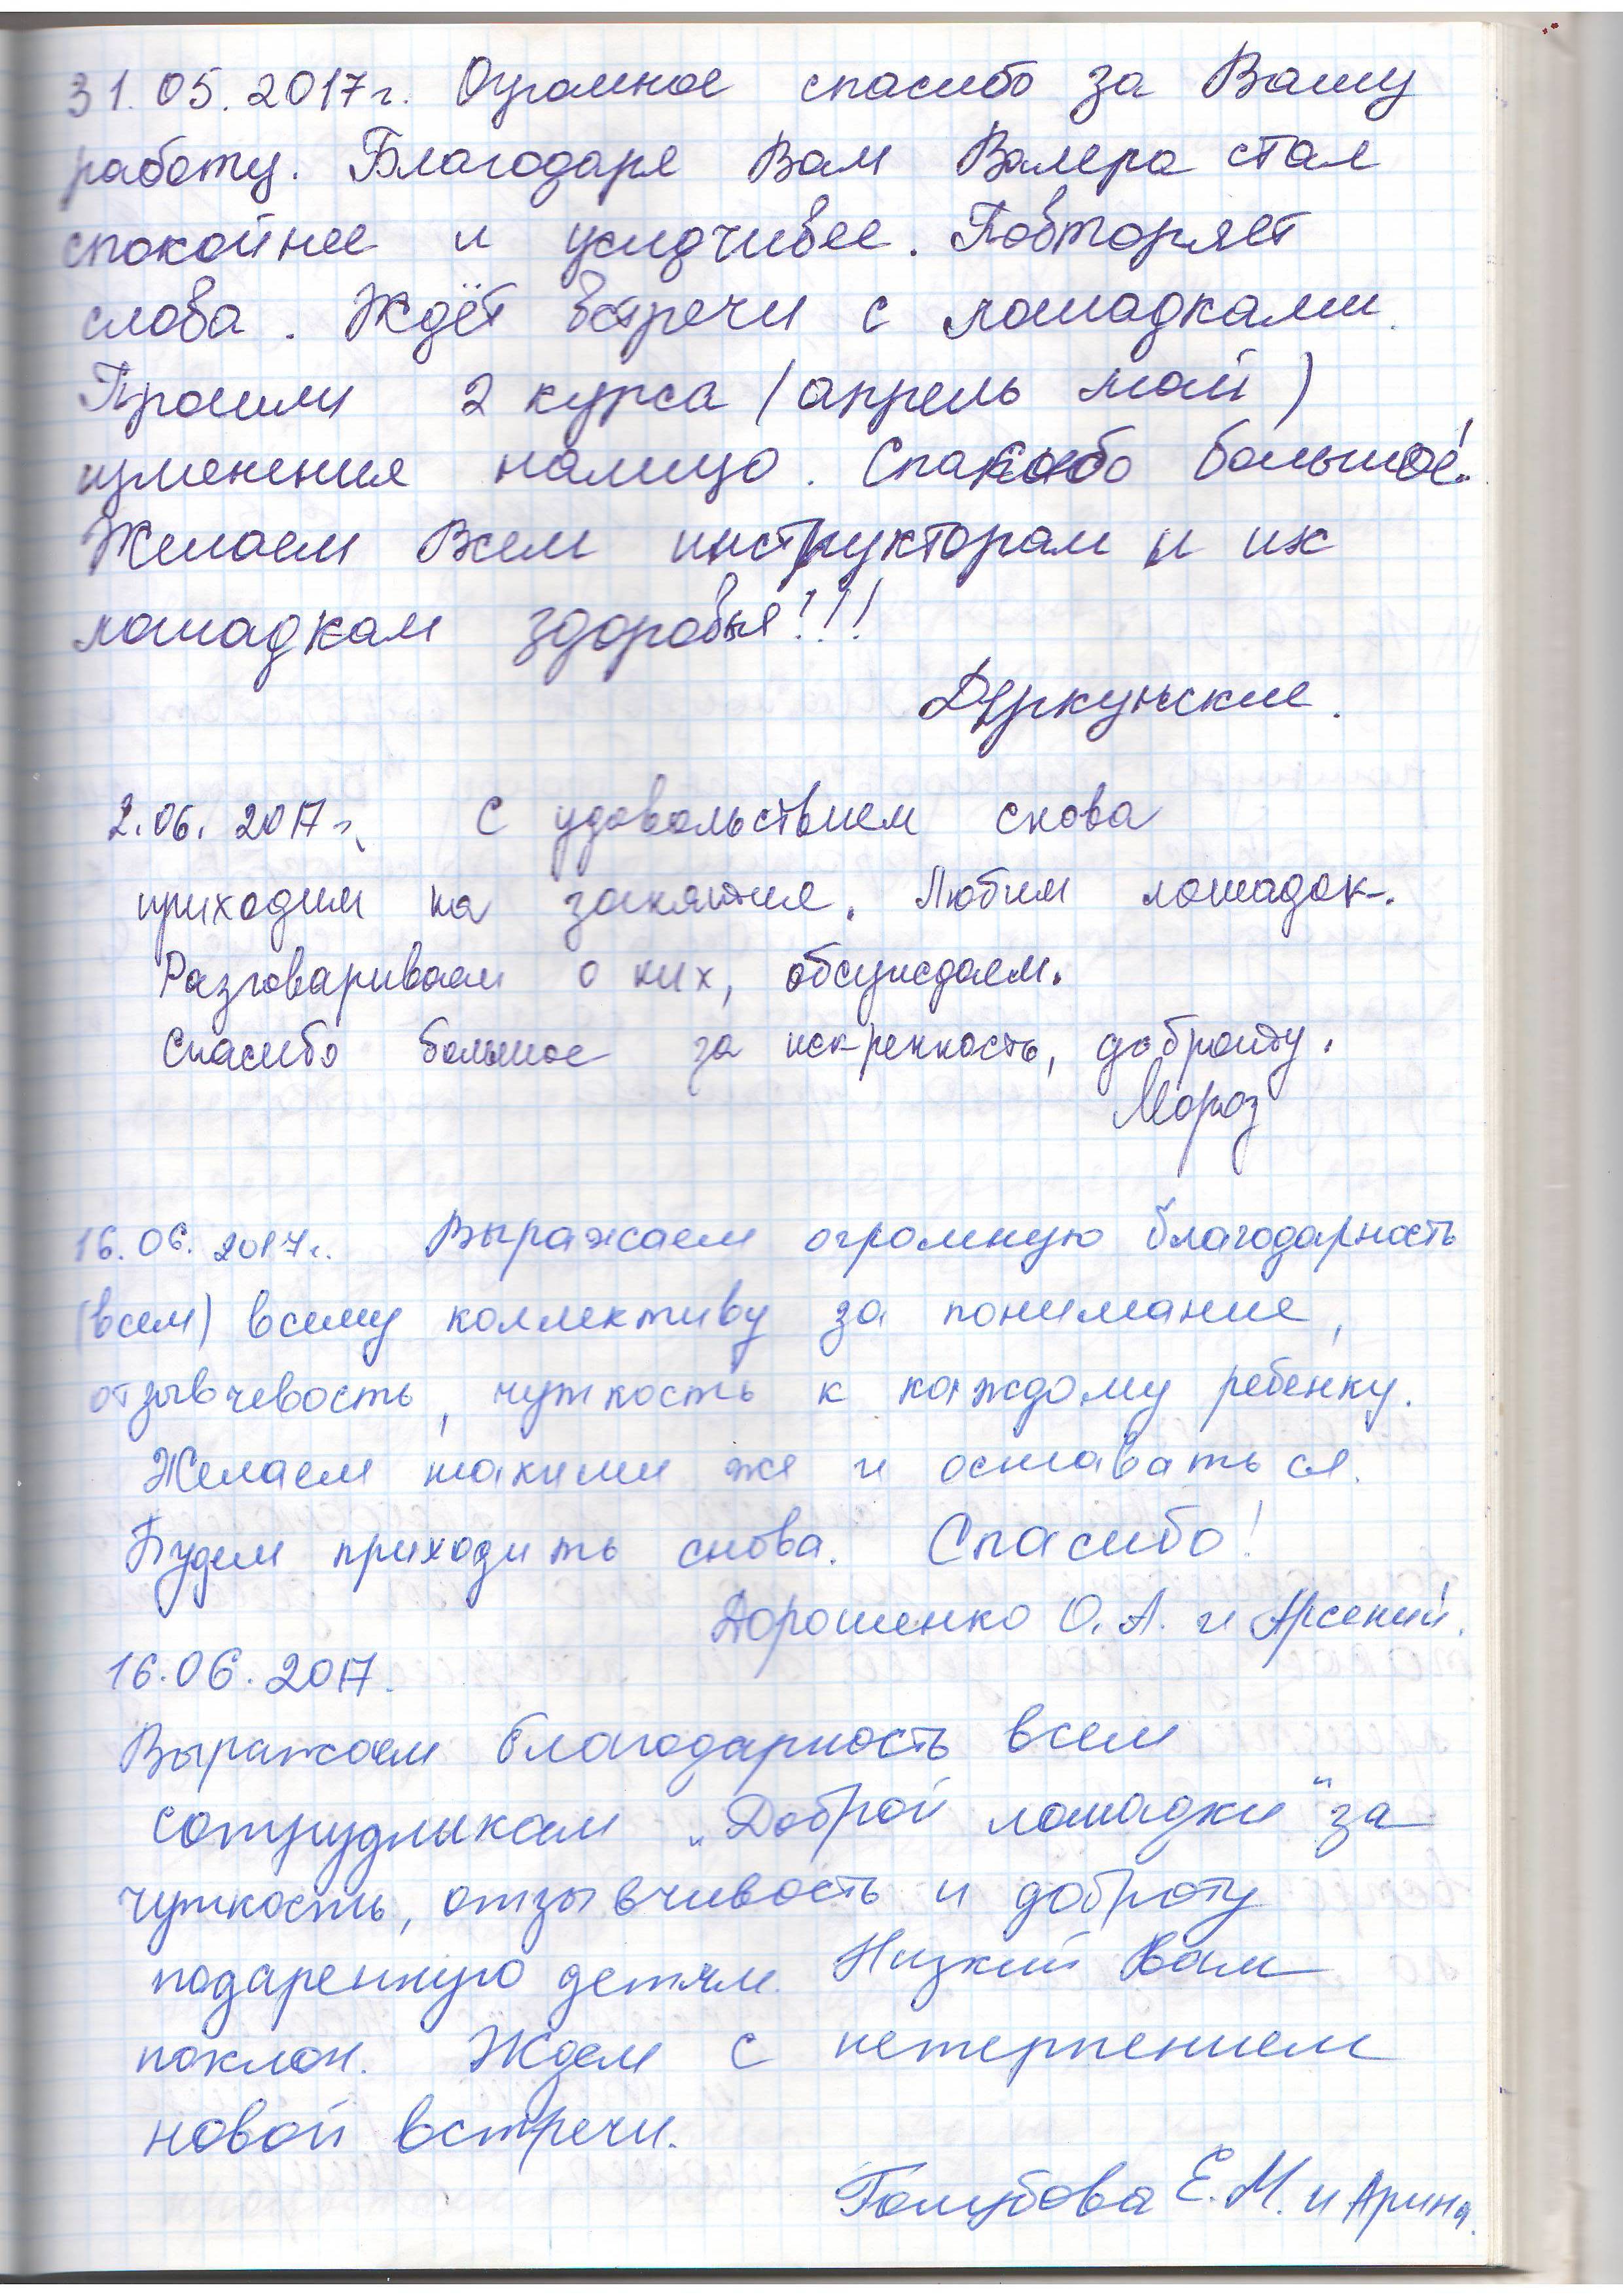 31.05.2017г. Огромное спасибо за Вашу
работу. Благодаря Вам Валера стал
спокойнее и усидчивее. Повторяет
слова. Ждёт встречи с лошадками.
Прошли 2 курса (апрель май)
изменения налицо. Спасибо большое!
Желаем Всем инструкторам и их
лошадкам здоровья!!!
Деркунские.
2.06.2017г. С удовольствием снова
приходим на занятия. Любим лошадок.
Разговариваем о них, обсуждаем.
Спасибо большое за искренность, доброту.
Мороз
16.06.2017г. Выражаем огромную благодарность
(всем) всему коллективу за понимание,
отзывчевость, чуткость к каждому ребенку.
Желаем такими же и оставаться.
Будем приходить снова. Спасибо!
Дорошенко О.А. и Арсений.
16.06.2017.
Выражаем благодарность всем
сотрудникам „Доброй лошадки" за
чуткость, отзывчивость и доброту
подаренную детям. Низкий Вам
поклон. Ждем с нетерпением
новой встречи.
Голубова Е.М. и Арина.